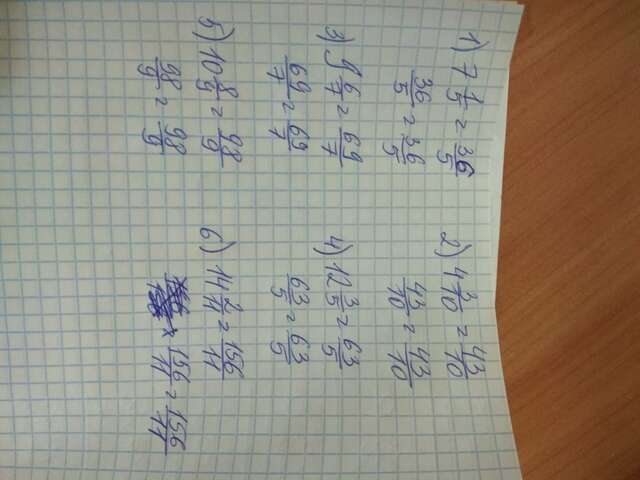 1) 7 1/5 = 36/5
36/5 = 36/5
2) 4 3/10 = 43/10
43/10 = 43/10
3) 9 6/7 = 69/7
69/7 = 69/7
4) 12 3/5 = 63/5
63/5 = 63/5
5) 10 8/9 = 98/9
98/9 = 98/9
6) 14 2/11 = 156/11
156/11 = 156/11